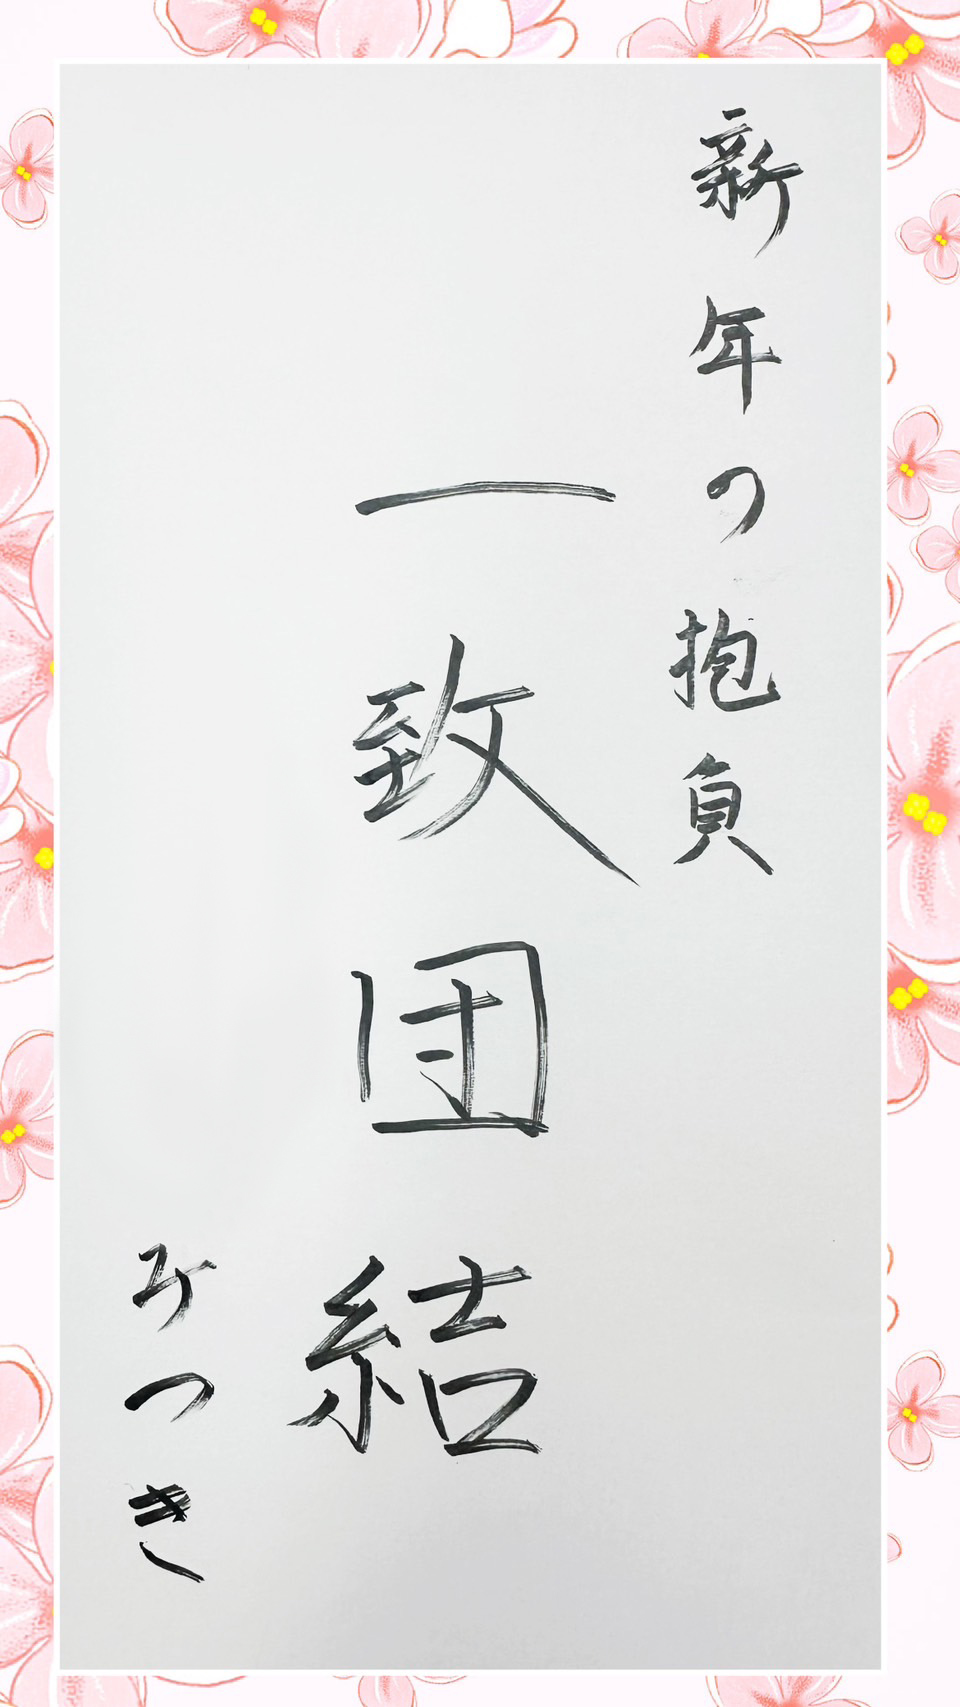 新年の抱負
一致団結
みつき